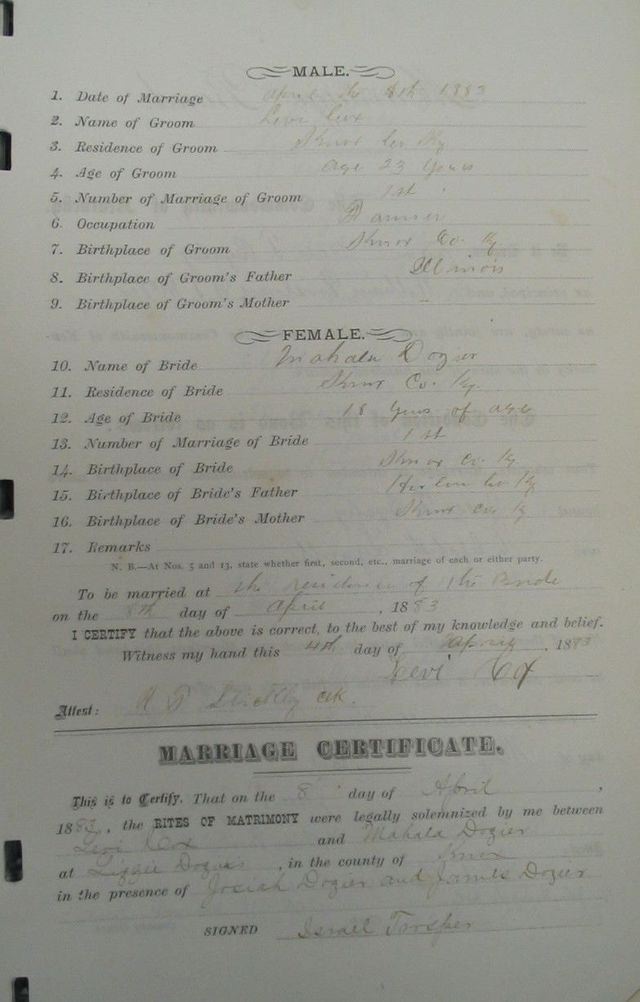 MALE.
1. Date of Marriage April the 8th 1883
2. Name of Groom Levi Cox
3. Residence of Groom Knox Co Ky
4. Age of Groom Age 23 Years
5. Number of Marriage of Groom 1st
6. Occupation Farmer
7. Birthplace of Groom Knox Co. Ky
8. Birthplace of Groom's Father Illinois
9. Birthplace of Groom's Mother "
FEMALE.
10. Name of Bride Mahala Dozier
11. Residence of Bride Knox Co. Ky.
12. Age of Bride 18 Years of age
13. Number of Marriage of Bride 1st
14. Birthplace of Bride Knox Co. Ky
15. Birthplace of Bride's Father Harlan Co Ky
16. Birthplace of Bride's Mother Knox Co Ky
17. Remarks
N. B.—At Nos. 5 and 13, state whether first, second, etc., marriage of each or either party.
To be married at the residence of the Bride
on the 8th day of April, 1883
I CERTIFY that the above is correct, to the best of my knowledge and belief.
Witness my hand this 4th day of April, 1883
Levi Cox
Attest: clk.
MARRIAGE CERTIFICATE.
This is to Certify, That on the 8 day of April,
1883, the RITES OF MATRIMONY were legally solemnized by me between
Levi Cox and Mahala Dozier
at Lizzie Doziers, in the county of Knox
in the presence of Josiah Dozier and James Dozier
SIGNED Israel